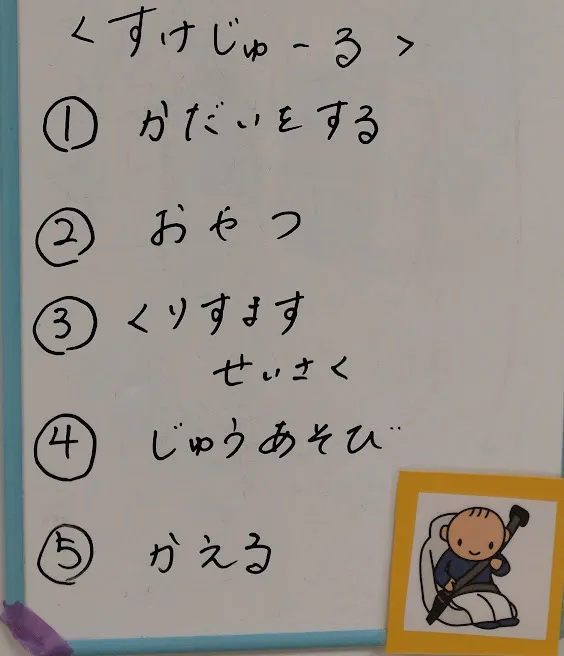 ＜すけじゅーる＞
① かだいをする
② おやつ
③ くりすます
せいさく
④ じゆうあそび
⑤ かえる